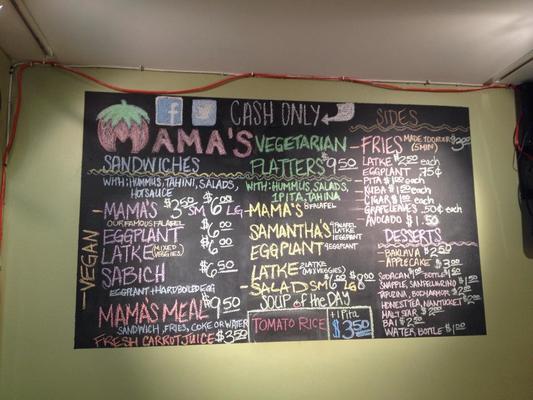 CASH ONLY
MAMA'S
SANDWICHES
WITH: HUMMUS, TAHINI, SALADS,
HOT SAUCE
VEGAN
MAMA'S $3.50 SM $6.00 LG
OUR FAMOUS FALAFEL
EGGPLANT $6.00
LATKE (MIXED VEGGIES) $6.00
SABICH $6.50
EGGPLANT + HARD BOILED EGG
MAMA'S MEAL $9.50
SANDWICH, FRIES, COKE OR WATER
FRESH CARROT JUICE $3.50
VEGETARIAN
PLATTERS $9.50
WITH: HUMMUS, SALADS,
1 PITA, TAHINA
MAMA'S 8 FALAFEL
SAMANTHA'S 4 FALAFEL 1 LATKE 1 EGGPLANT
EGGPLANT 4 EGGPLANT
LATKE 2 LATKE (MIX VEGGIES)
SALAD SM LG
SOUP of the DAY
TOMATO RICE
+ 1 Pita
$3.50
SIDES
FRIES MADE TO ORDER (5 MIN) $3.00
LATKE $2.50 each
EGGPLANT 75¢
PITA $1.00 each
KUBA $1.50 each
CIGAR $1.00 each
GRAPELEAVES .50¢ each
AVOCADO $1.50
DESSERTS
BAKLAVA $2.50
APPLE CAKE $3.00
SODA CAN BOTTLE
SNAPPLE, SAN PELLEGRINO
TAPUZINA, BLACK
HONEST TEA, NANTUCKET
MALT STAR $2.00
BAI $2.50
WATER BOTTLE $1.00